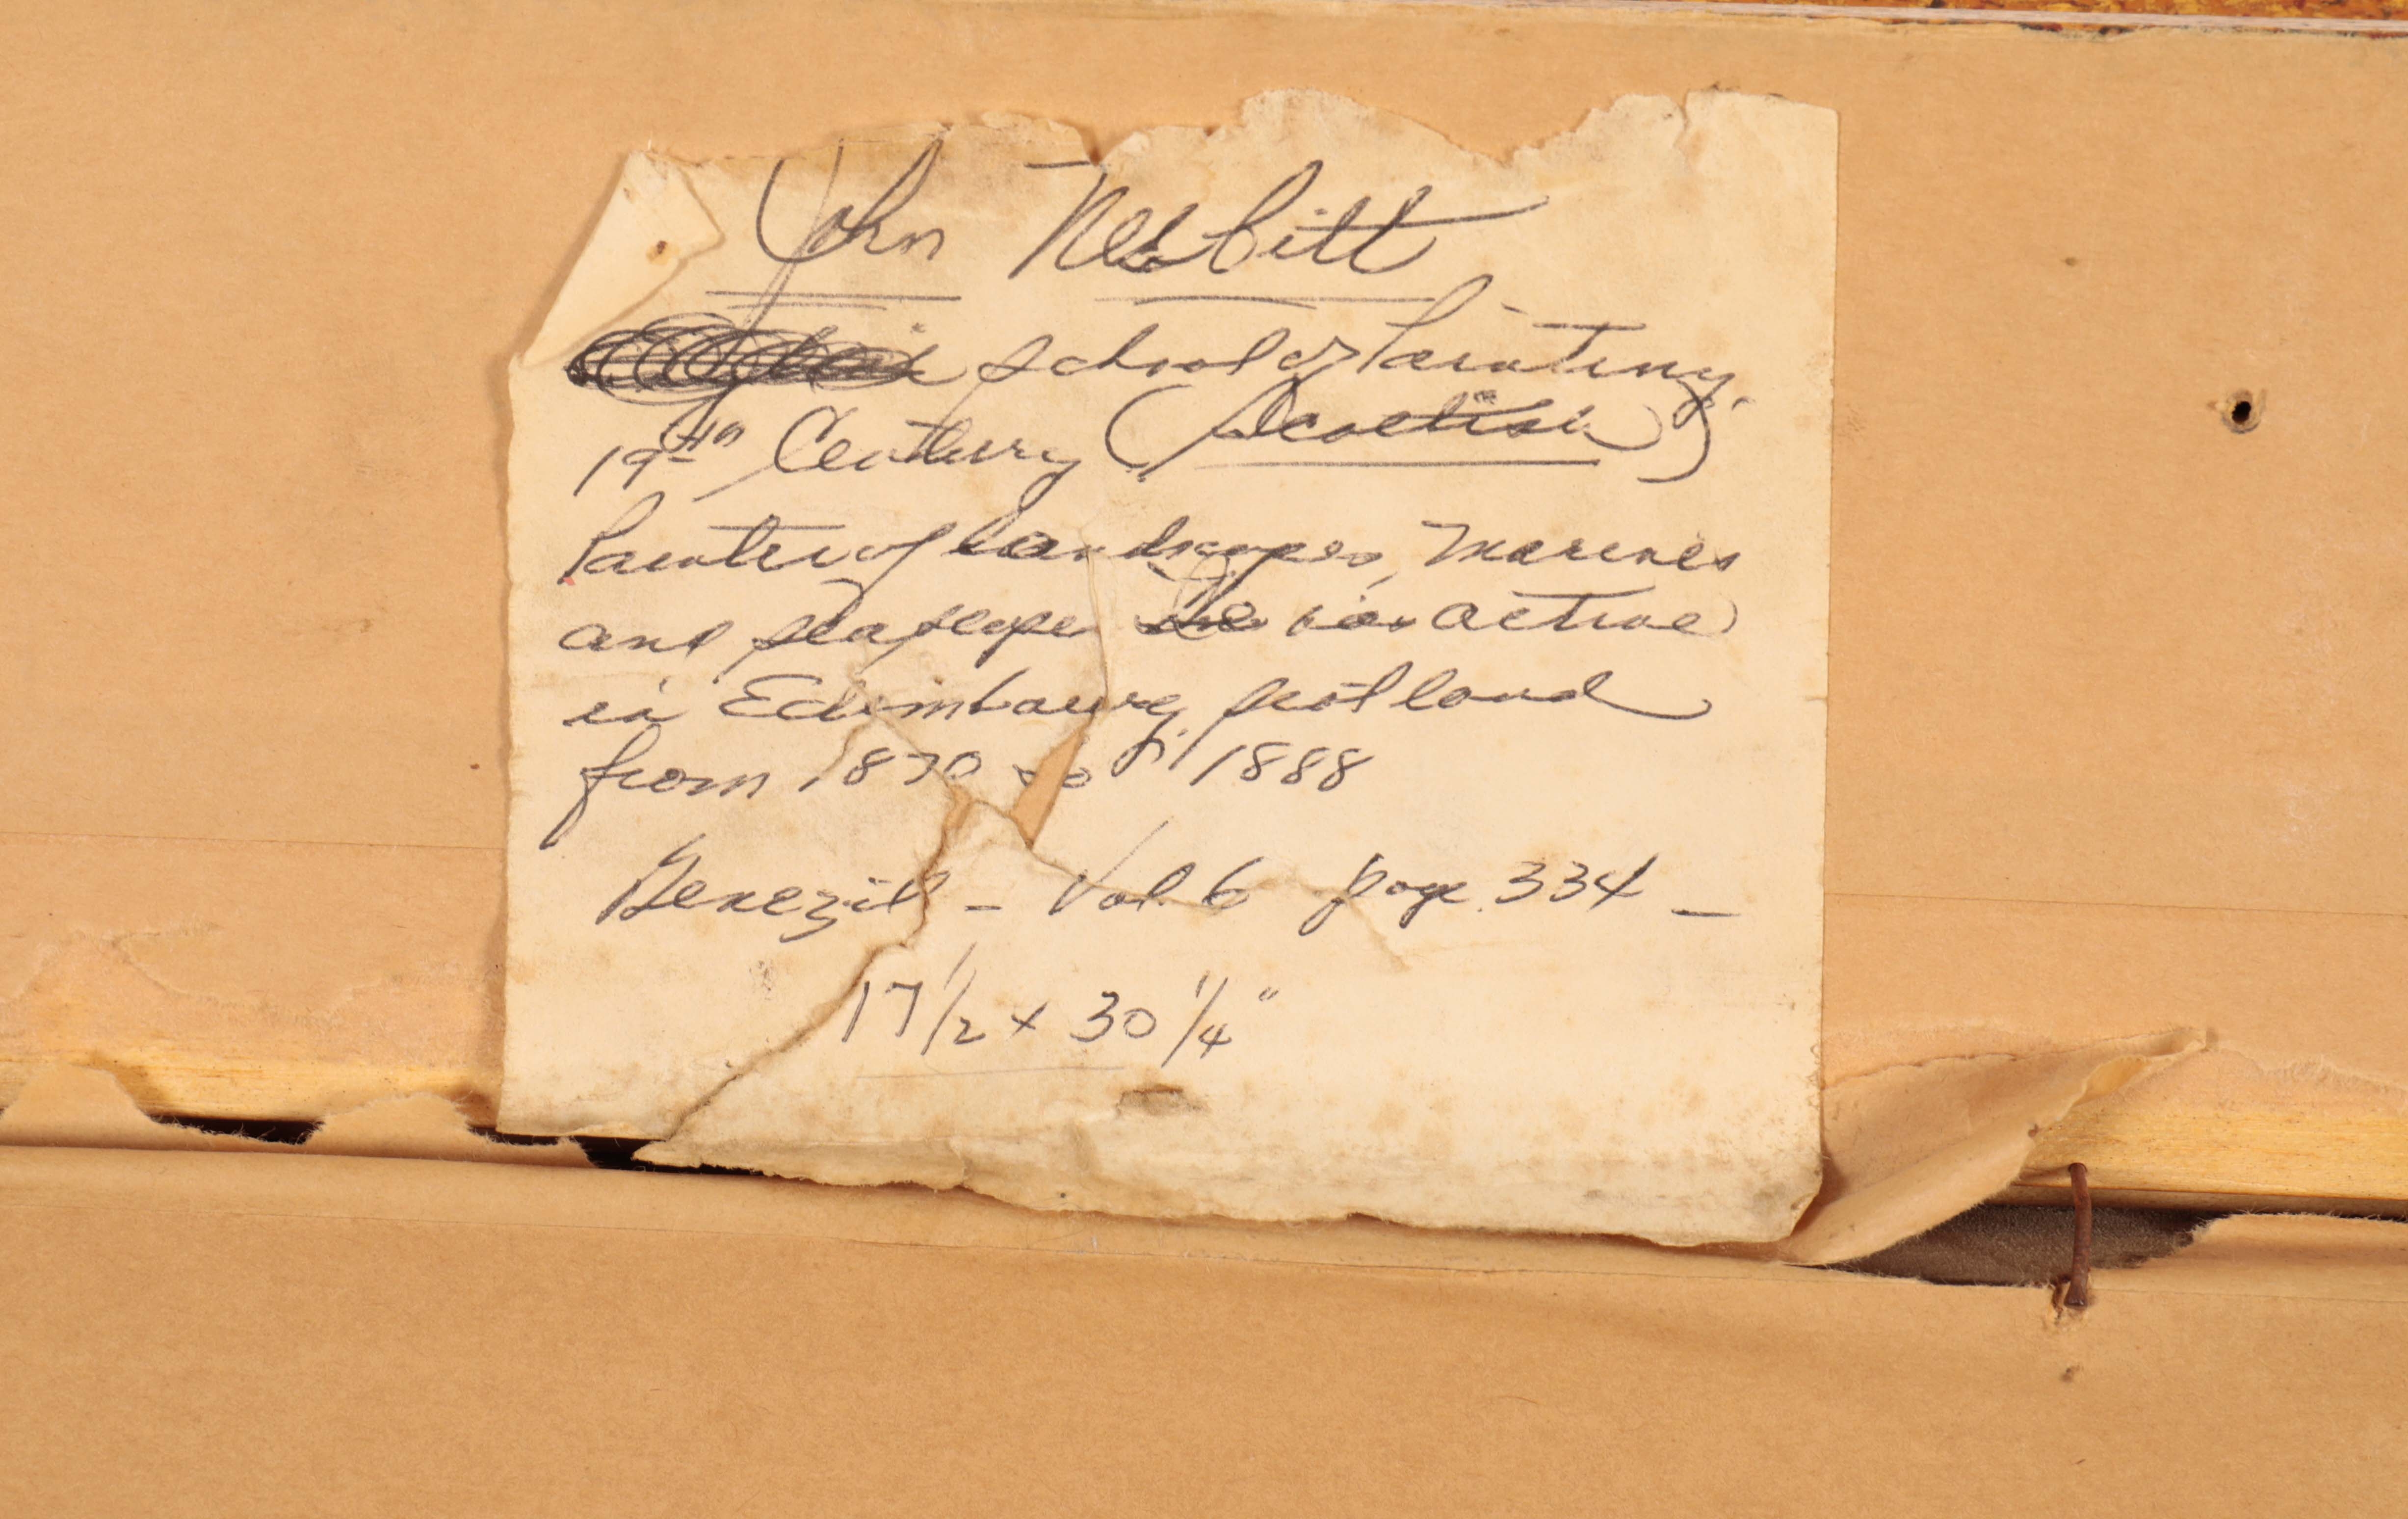 John Nesbitt
school of Painting
19th Century (Scottish)
Painter of landscapes, Marines
and seascapes active
in Edimbourg, Scotland
from 1870 to 1888
Benezit - Vol. 6 page 334 -
17 1/2 x 30 1/4"